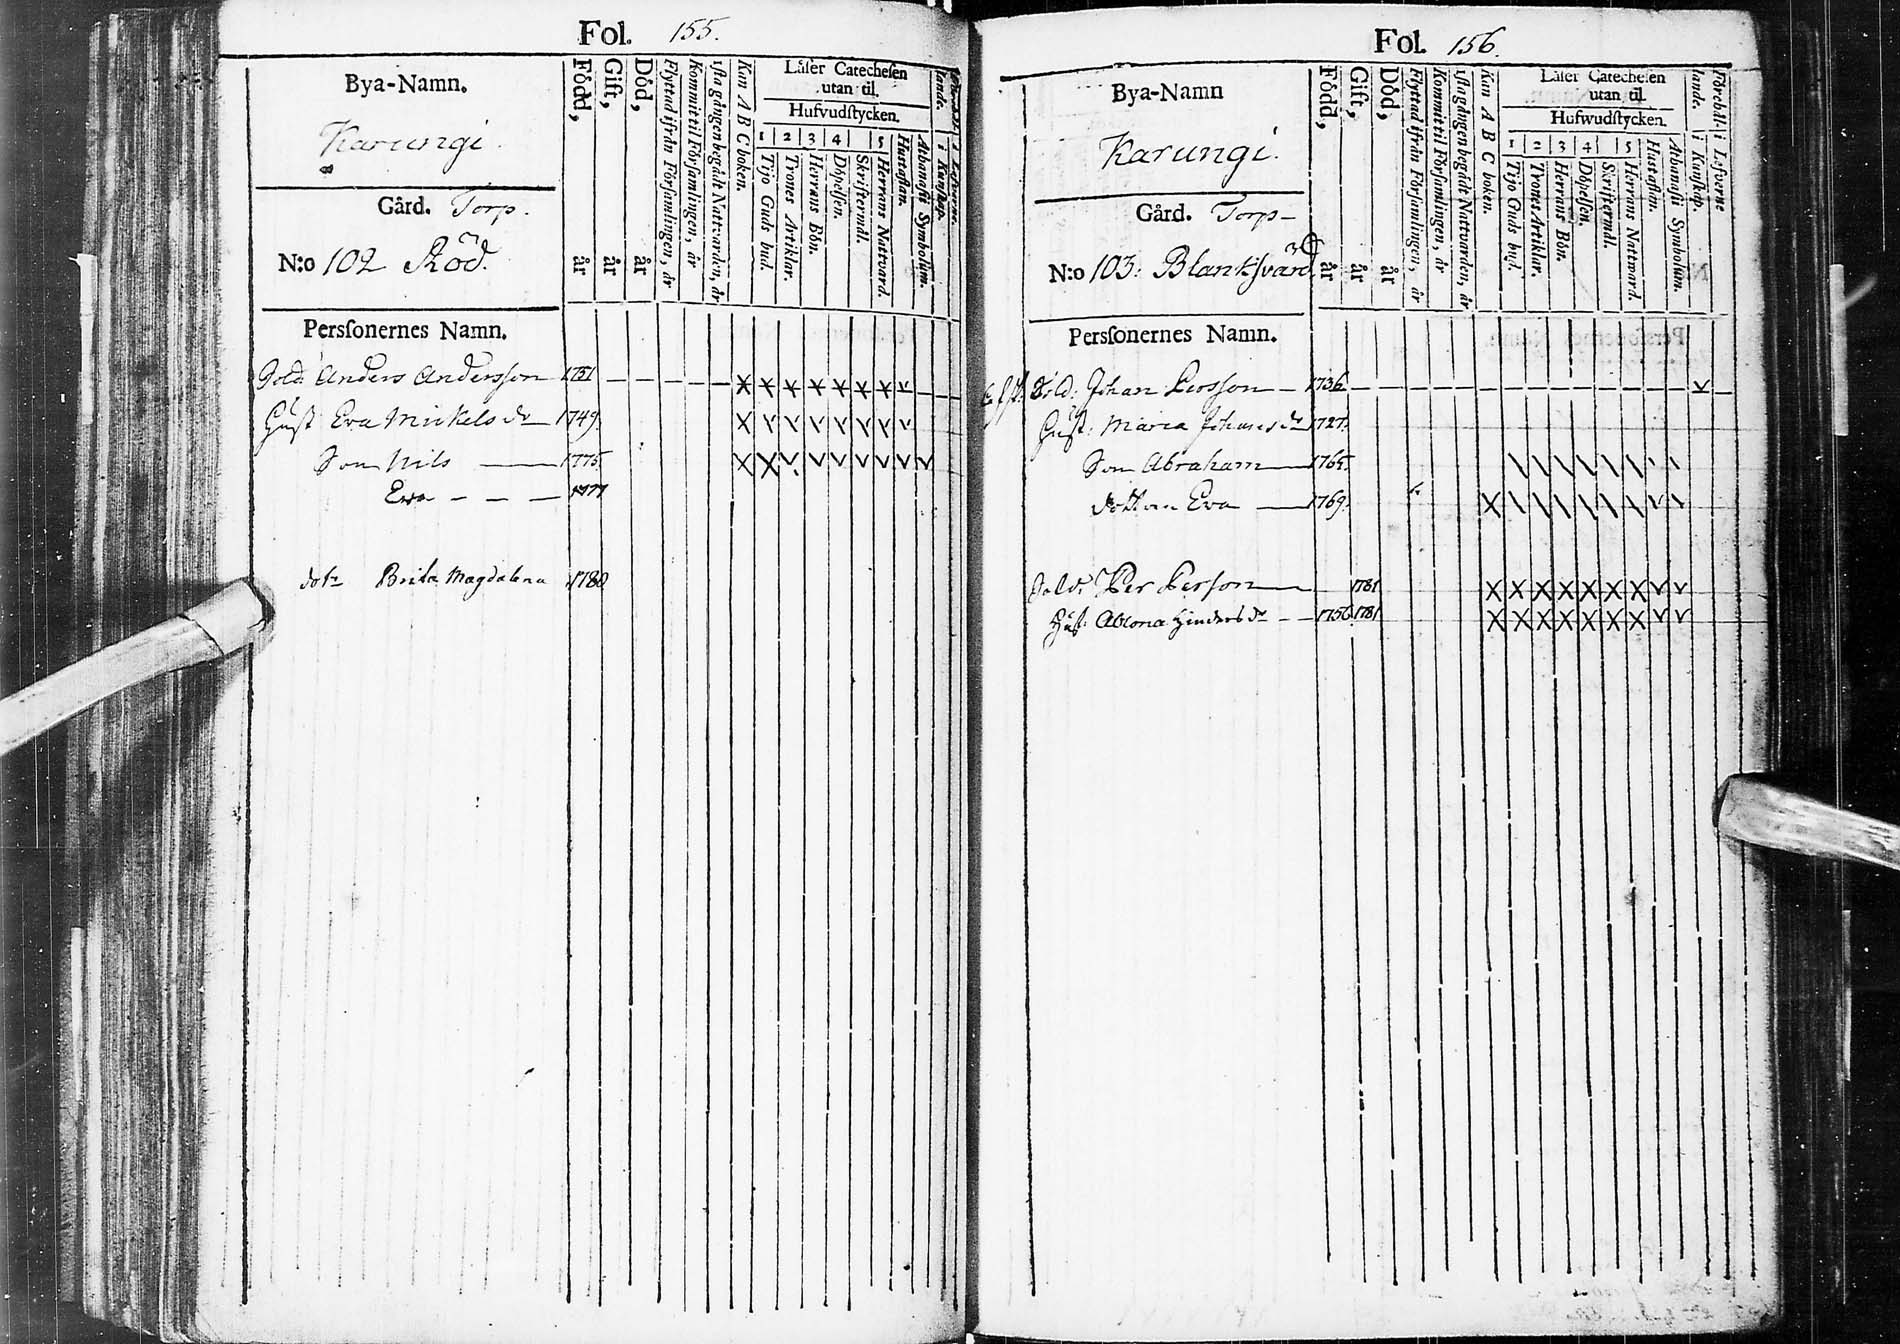 Fol. 155.
Bya-Namn.
Karungi.
Gård. Torp.
N:o 102 Röd.
Persſonernes Namn.
Född, år
Gift, år
Död, år
Flyttad ifrån Förſamlingen, år
Kommit til Förſamlingen, år
1ſta gången begådt Nattvarden, år
Kan A B C boken.
Läſer Catecheſen
utan til.
Hufvudſtycken.
1 2 3 4 5
Tijo Guds bud.
Trones Artiklar.
Herrans Bön.
Döpelſen.
Skriftermål.
Herrans Nattvard.
Huſtaflan.
Athanaſii Symbolum.
lande. i Kunſkap.
i Lefverne.
Sold. Anders Andersſon 1751
Huſt Eva Mickels dr 1749.
Son Nils 1775.
Ewa 1777
dotr Brita Magdalena 1780
Fol. 156.
Bya-Namn
Karungi.
Gård. Torp
N:o 103: Blankſvärd
Persſonernes Namn.
Född, år
Gift, år
Död, år
Flyttad ifrån Förſamlingen, år
Kommit til Förſamlingen, år
1ſta gången begådt Nattvarden, år
Kan A B C boken.
Läſer Catecheſen
utan til.
Hufwudſtycken.
1 2 3 4 5
Tijo Guds bud.
Trones Artiklar.
Herrans Bön.
Döpelſen.
Skriftermål.
Herrans Nattvard.
Huſtaflan.
Athanaſii Symbolum.
lande. i Kunſkap.
Förehål- i Lefverne
Sold. Johan Persſon 1736
Huſt. Maria Johans dr 1727.
Son Abraham 1765.
dottren Eva 1769.
Sold. Per Perſon 1781
Huſt. Ablona Hinders dr 1756 1781